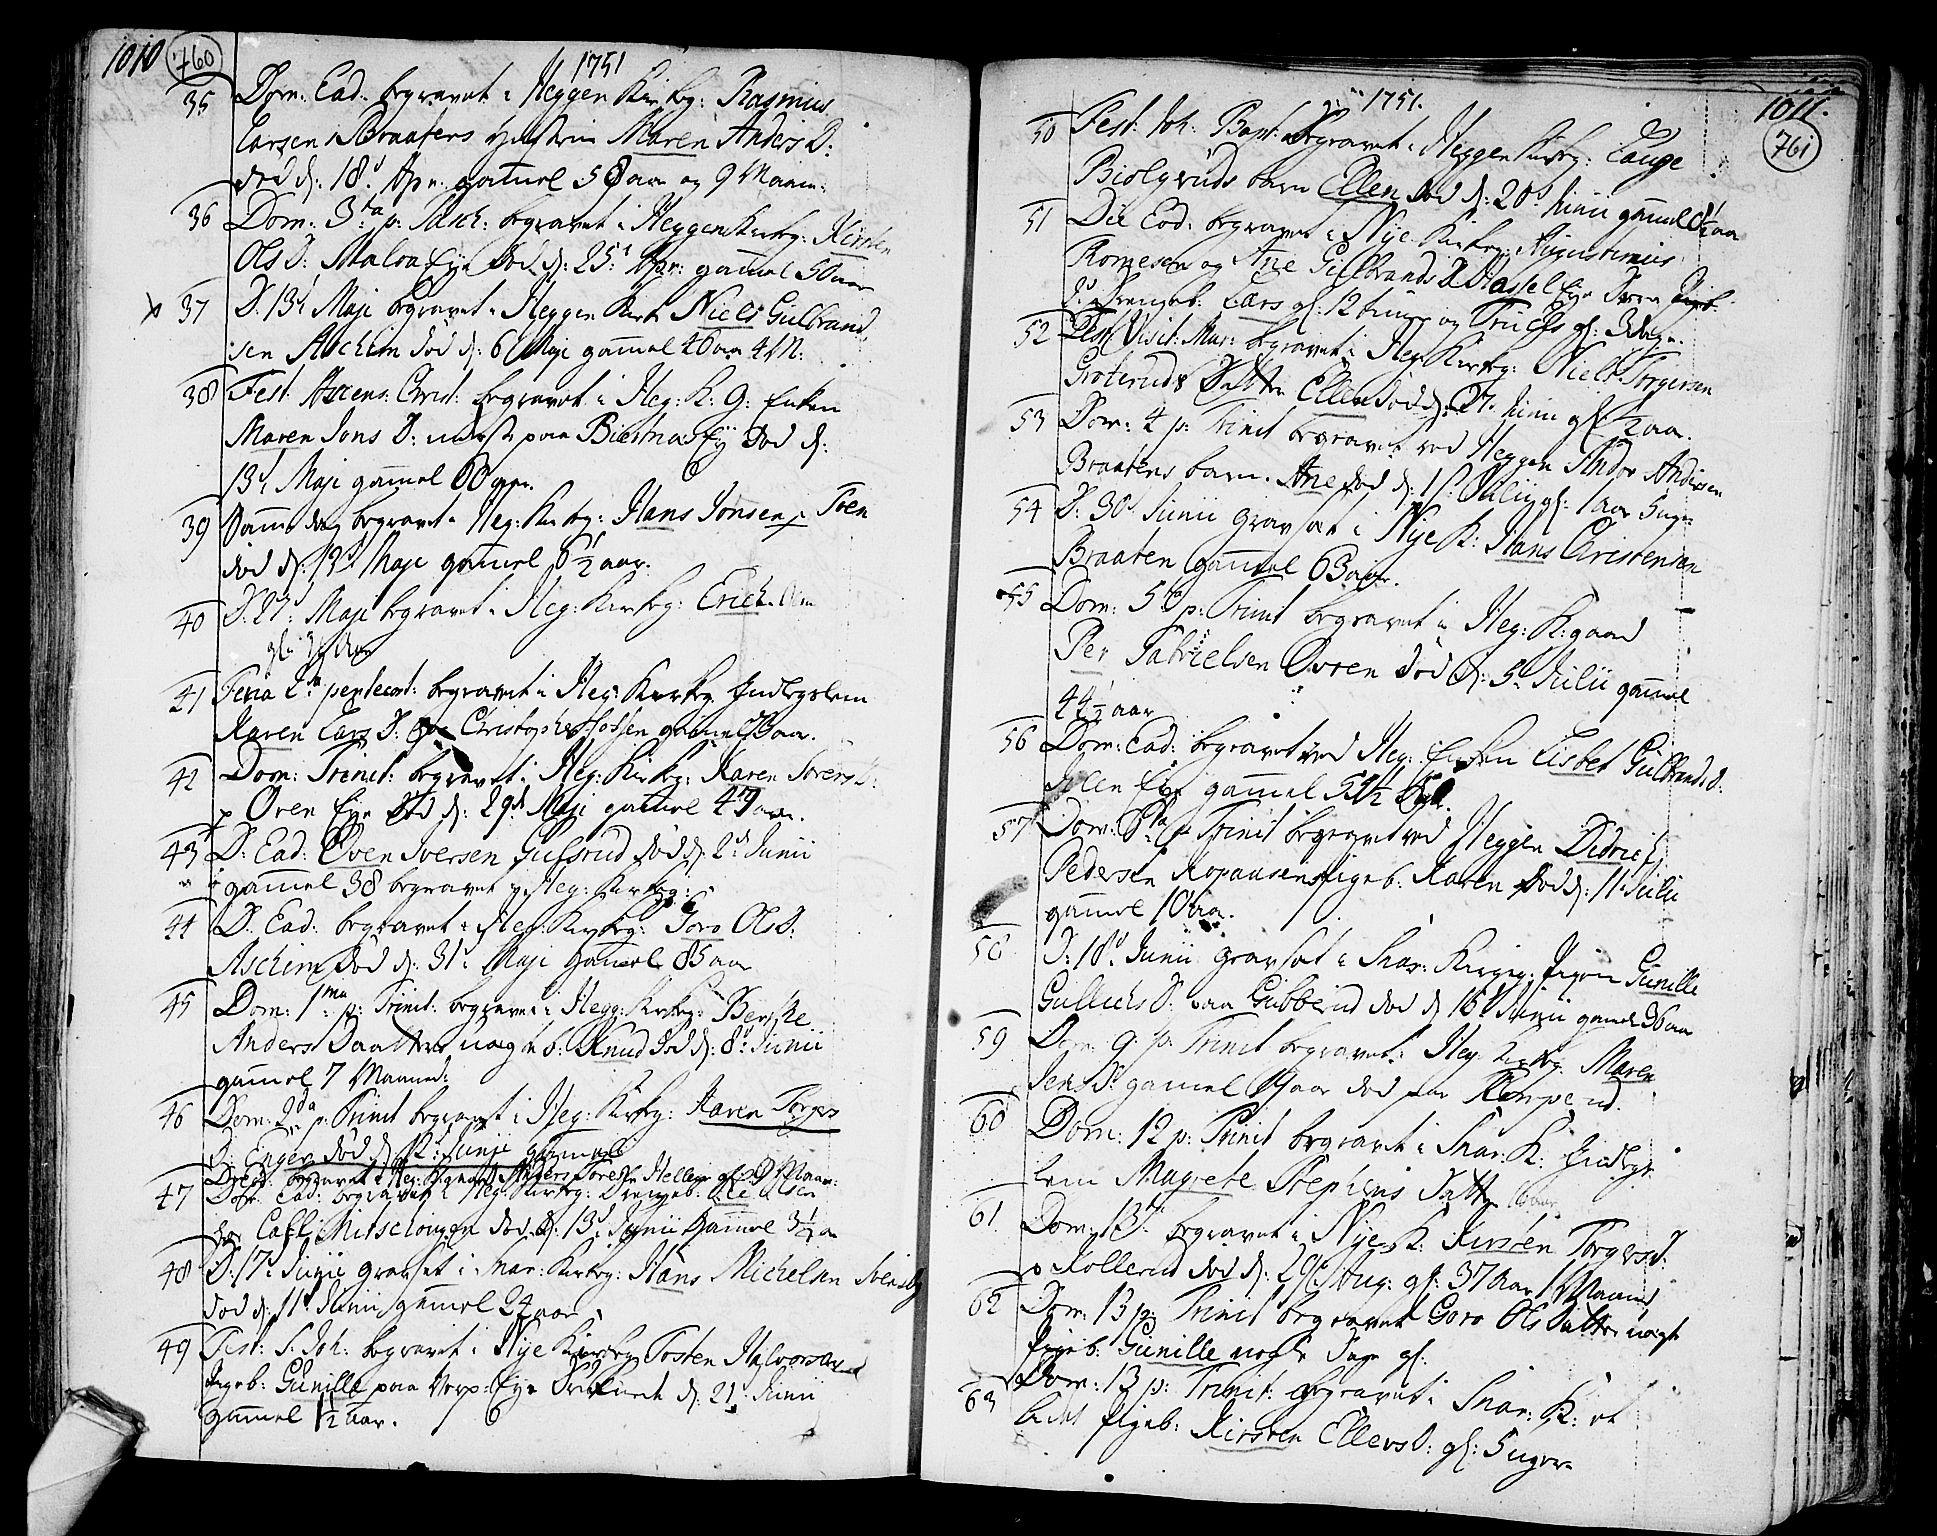 1010 760
1751
35 Dom: Ead: begravet i Heggen Kirkg: Rasmus
Larsen Braatens Hustrue Maren Anders D:
død d: 18d Apr: gamel 58 aar og 9 Maan:
36 Dom: 3tia p: Pasch: begravet i Heggen Kirkg: Kirsten
Ols D: Maloa Eye død d: 25d Apr: gamel 50 aar
37 D. 13d Maji begravet i Heggen Kirk Niels Gulbrand
sen Aschim død d: 6 Maji gamel 46 aar 4 M:
38 Fest: Ascens: Christ: begravet i Heg: K: G: Enken
Maren Jons D: paa Biertnas Eye død d:
13d Maji gamel 60 aar.
39 Samme dag begravet i Heg: Kirkg: Hans Jonsen p Toen
død d: 13d Maji gamel 6 1/2 aar.
40 D. 27d Maji begravet i Heg: Kirkg: Erich
41 Feria 2da pentecost: begravet i Heg: Kirkg Inderstem
Karen Lars D: Christopher gamel aar.
42 Dom: Trinit: begravet i Heg: Kirkg: Karen Iversd:
p Oren Eye død d: 29d Maji gamel 47 aar.
43 D: Ead: Oven Iversen Gulsrud død d: 2d Junii
gamel 38 begravet p Heg: Kirkg:
44 D. Ead: begravet i Heg: Kirkg: Goro Ols D:
Aschim død d: 31d Maji gamel 85 aar
45 Dom: 1ma p: Trinit: begravet i Hegg: Kirkg: Berthe
Anders Daatter uægte b: Knud død d: 8d Junii
gamel 7 Maaned:
46 Dom: 2da p: Trinit begravet i Heg: Kirkg: Karen Torgers
D: Enger død d: 12 Junii gamel
47 Dom: Ead: begravet i Heg: Kirkg: Drengeb: Ole Olsen
død d: 13d Junii gamel 3 1/2 a
48 D: 17d Junii gravsat i Snar: Kirkg: Hans Michelsen Svensby
død d: 11d Junii gamel 24 aar
49 Fest: S: Joh: begravet i Nye Kirkg Tosten Halvorsens
Pigeb: Gunille paa Vorp: Eye d: 21d Junii
gamel 1 1/2 aar.
1751.
1011. 761
50 Fest: Joh: Bapt: begravet i Heggen Kirkg: Lauge
Biølgruds barn Ellen død d: 20d Junii gamel 8 1/2 aar
51 Die Eod: begravet i Nye Kirkg: Augustinus
Romesen og Ane Gulbrands D Hassel Eye
Drengeb: Lars gl: 12 og Truels gl: 3 dage.
52 Fest Visit: Mar: begravet i Heg: Kirkg: Niels Torgersen
Groteruds Datter Ellen død d: 27. Junii gl 1/2 aar.
53 Dom: 4 p: Trinit begravet ved Heggen Andor Andersen
Braatens barn Ane død d: 1st Julii gl: 1 aar 5 uger
54 D: 30d Junii gravsat i Nye K: Hans Christensen
Braaten gamel 63 aar.
55 Dom: 5ta p: Trinit begravet i Heg: K: gaard
Per Gabrielsen Ovren død d: 5d Julii gamel
44 1/2 aar
56 Dom: ead: begravet ved Heg: Enken Lisbet Gulbrands D.
Eye gamel
57 Dom: 6ta p Trinit begravet ved Heggen Didrich
Pedersen Kopaasens Pigeb: Karen død d: 11 Julii
gamel 10 aar.
58 D: 18d Junii gravsat i Snar: Kirkg: Pigen Gunille
Gullichs D. paa Gubberud død d 16d Junii gamel 36 aar
59 Dom: 9. p. Trinit begravet i Heg: Kirkg Maren
Jens D: gamel aar død paa Kompend.
60 Dom: 12 p: Trinit begravet i Snar: K: Inderst
lem Magrete Stephens Datter
61 Dom: 13. begravet i Nye K: Kirsten Torgersd:
p Kollerud død d: 29d Aug: gl: 37 Aar 1 Maaned
62 Dom: 13 p: Trinit begravet Goro Ols Datter uægte
Pigeb: Gunille nogle Dage gl:
63 Dom: 13 p: Trinit: begravet i Snar: K: et
Pigeb: Kirsten Ellevs D: gl: 5 uger